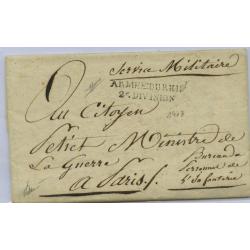 Service Militaire
ARMÉE DU RHIN
2e. DIVISION
Au Citoyen
Petiet Ministre de
La Guerre
Bureau du
Personnel de
l'Infanterie
a Paris